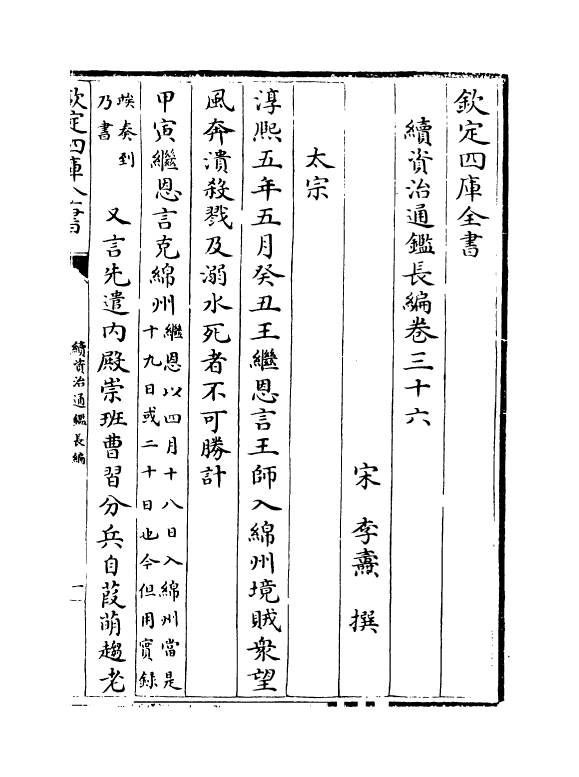 欽定四庫全書
續資治通鑑長編卷三十六
宋 李燾 撰
太宗
淳熙五年五月癸丑王繼恩言王師入綿州境賊衆望
風奔潰殺戮及溺水死者不可勝計
甲寅繼恩言克綿州
繼恩以四月十八日入綿州當是
十九日或二十日也今但用實錄
竢奏到
乃書
又言先遣内殿崇班曹習分兵自葭萌趨老
欽定四庫全書
續資治通鑑長編
一